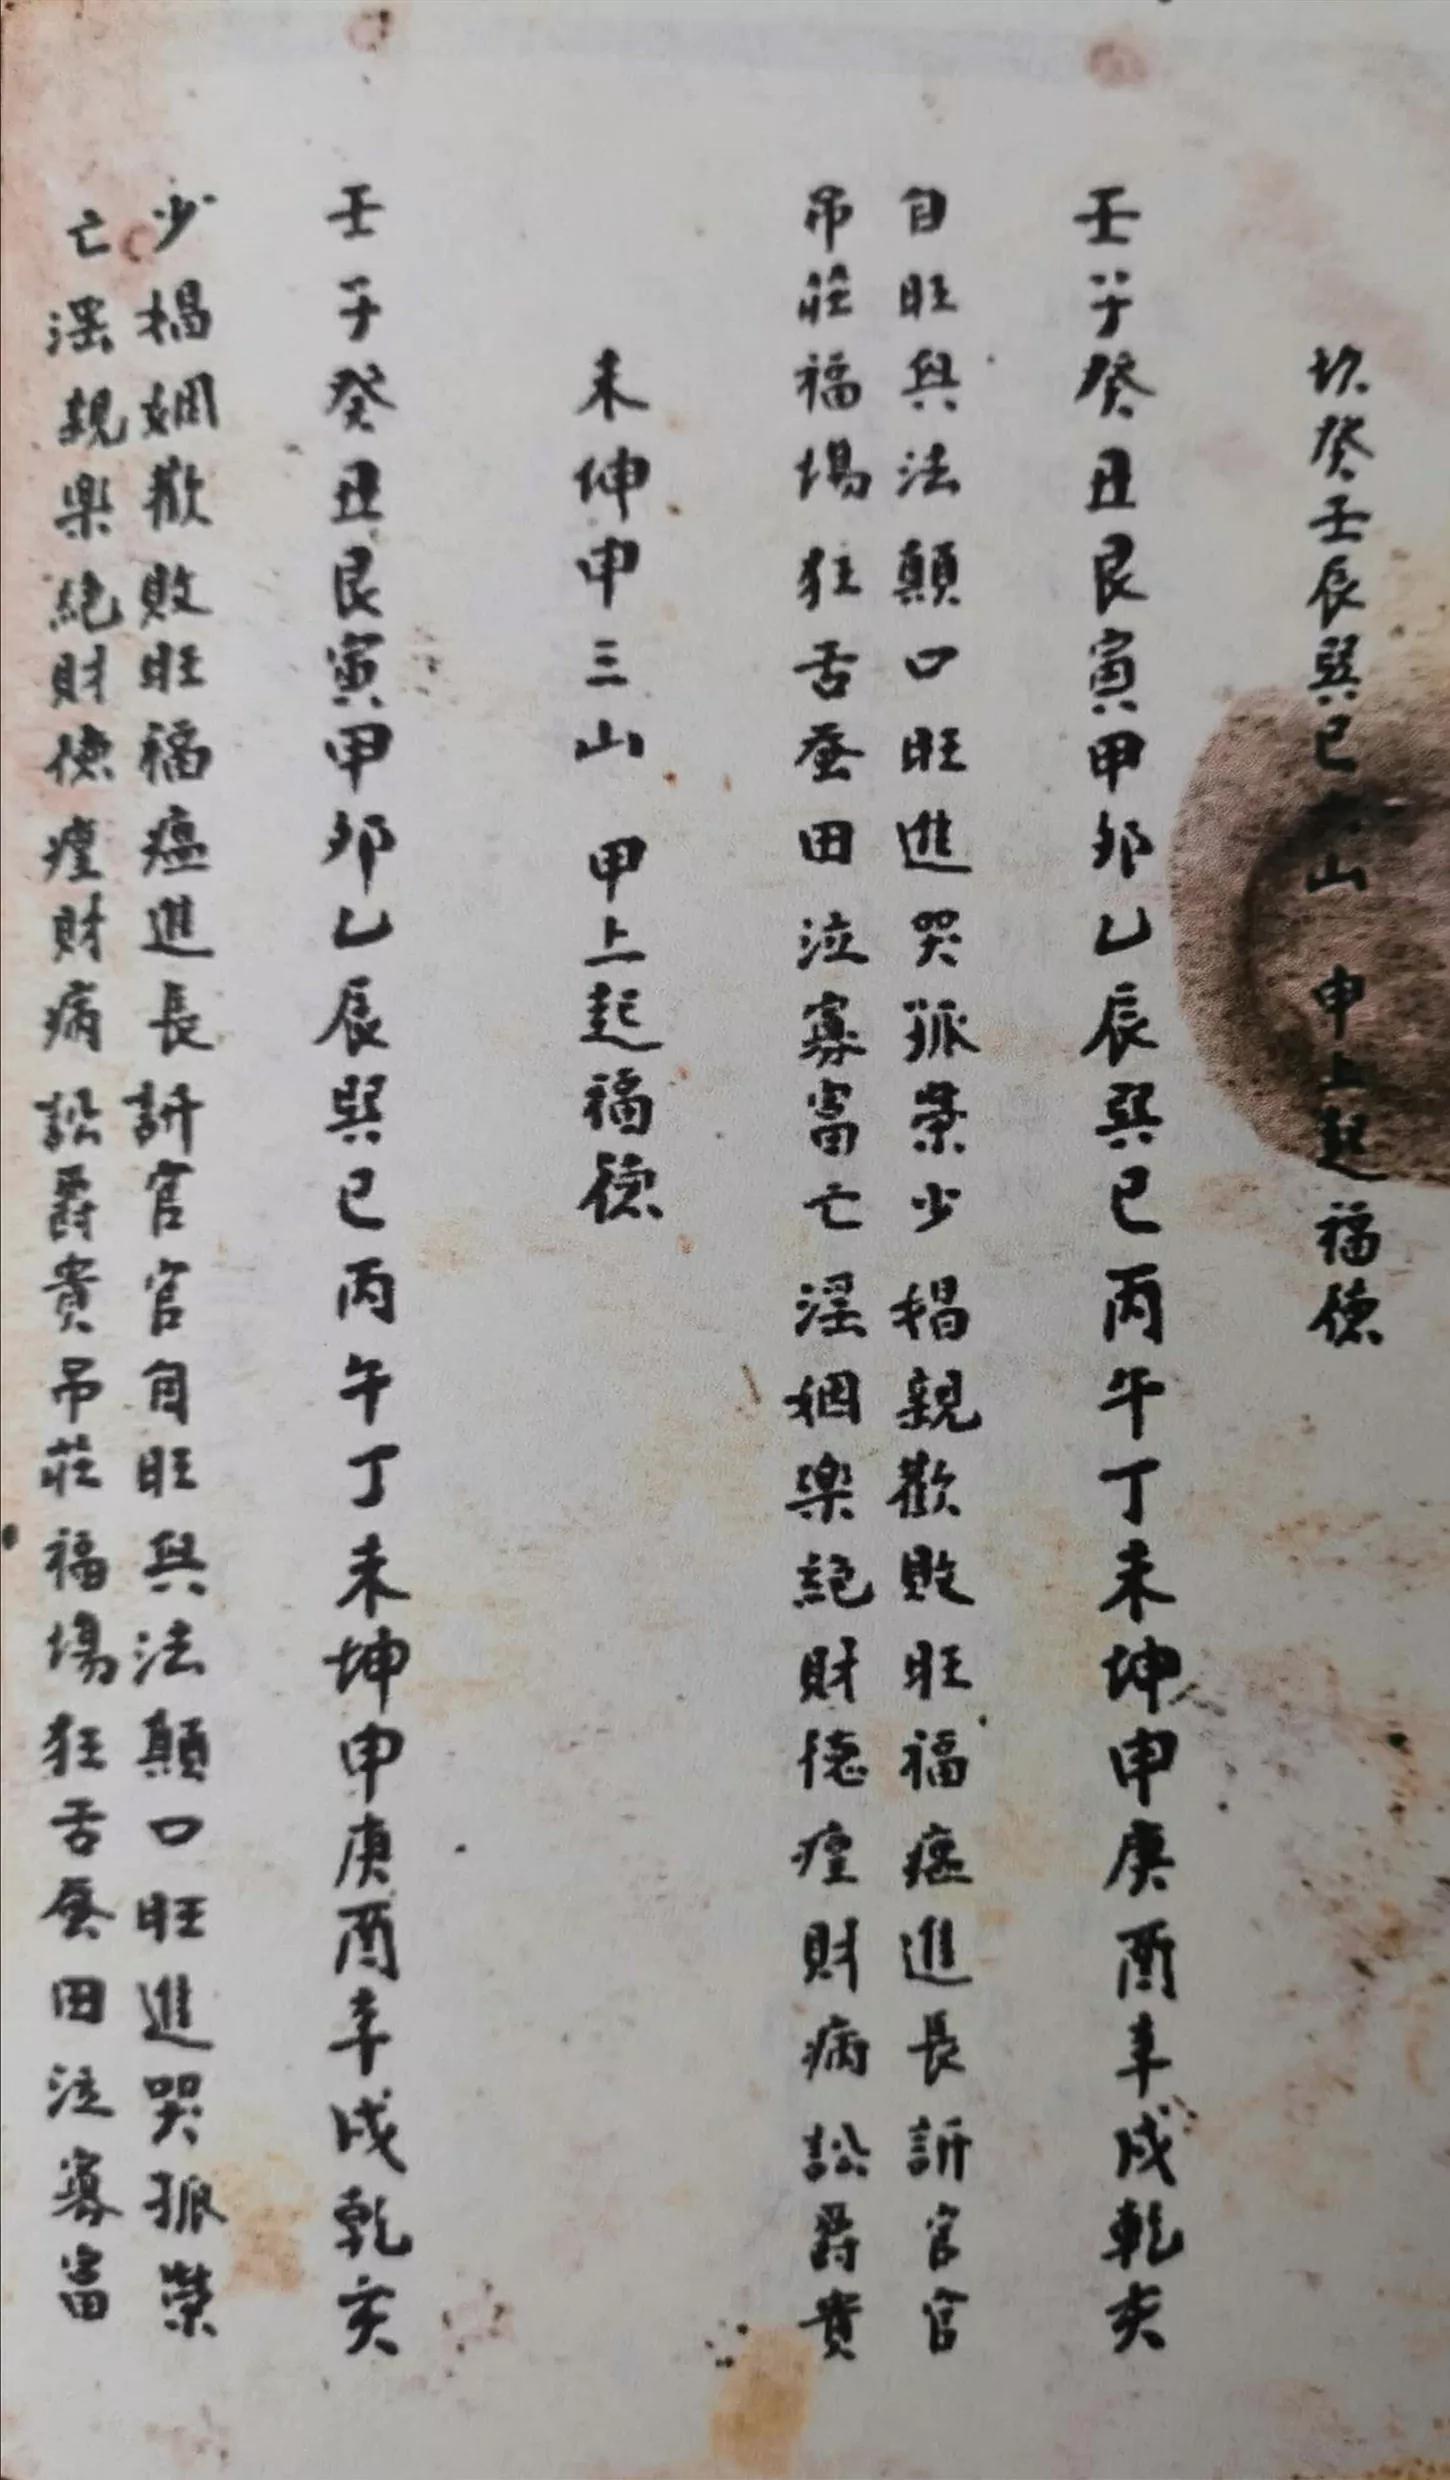 坎癸壬辰巽巳山 申上起福德
壬子癸丑艮寅甲卯乙辰巽巳丙午丁未坤申庚酉辛戌乾亥
自旺與法顛口旺進哭孤榮少娼親歡敗旺福瘟進長訢官官
吊莊福場狂舌蚕田泣寡富亡淫姻樂絕財德㾮財病訟爵貴
未伸申三山 甲上起福德
壬子癸丑艮寅甲卯乙辰巽巳丙午丁未坤申庚酉辛戌乾亥
少娼姻歡敗旺福瘟進長訢官官自旺與法顛口旺進哭孤榮
亡淫親樂絕財德㾮財病訟爵貴吊莊福場狂舌蚕田泣寡富